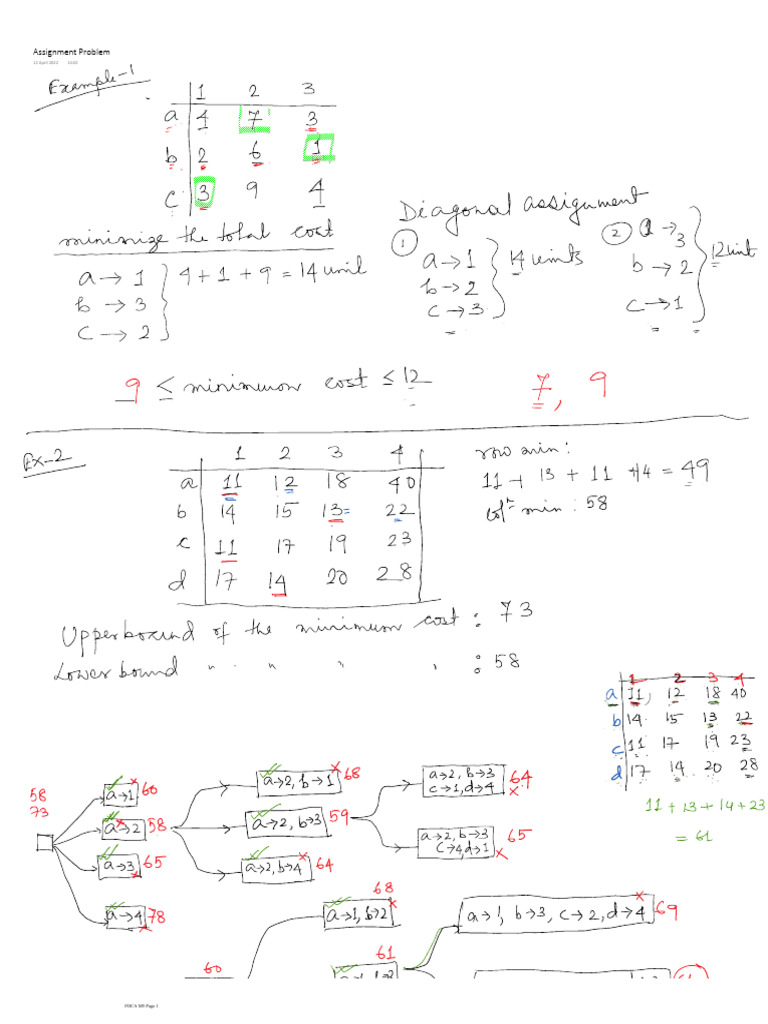 Assignment Problem
Example-1
1 2 3
a 4 7 3
b 2 6 1
c 3 9 4
minimize the total cost
a → 1
b → 3
c → 2
4 + 1 + 9 = 14 unit
Diagonal assignment
1
a → 1
b → 2
c → 3
14 units
2
→ 3
b → 2
c → 1
12 unit
9 ≤ minimum cost ≤ 12
7, 9
Ex-2
1 2 3 4
a 11 12 18 40
b 14 15 13 22
c 11 17 19 23
d 17 14 20 28
row min:
11 + 13 + 11 + 14 = 49
min: 58
Upper bound of the minimum cost : 73
Lower bound " " " " : 58
1 2 3 4
a 11, 12 18 40
b 14 15 13 22
c 11 17 19 23
d 17 14 20 28
11 + 13 + 14 + 23
= 61
58
73
a→1 60
a→2 58
a→3 65
a→4 78
a→2, b→1 68
a→2, b→3 59
a→2, b→4 64
a→2, b→3
c→1, d→4 64
a→2, b→3
c→4, d→1 65
68
a→1, b→2
a→1, b→3, c→2, d→4 69
60
61